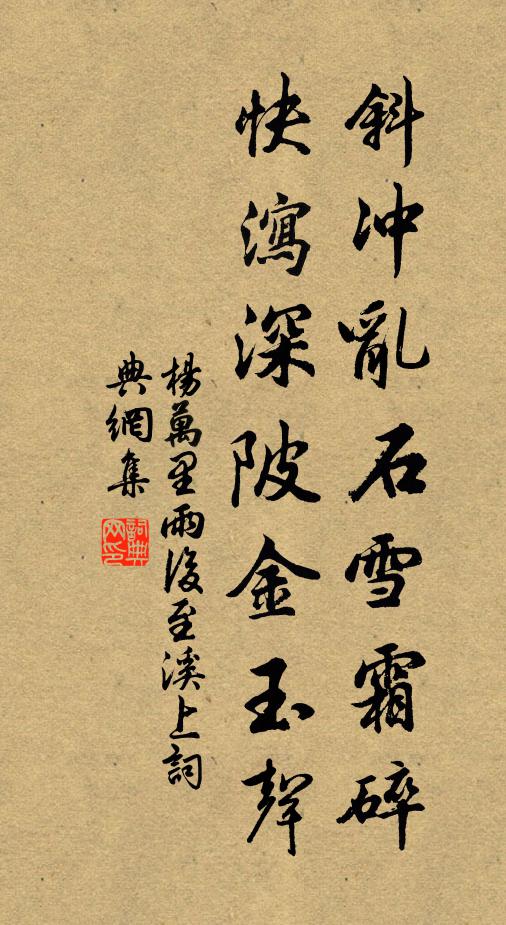 斜冲亂石雪霜碎
快瀉深陂金玉聲
楊萬里雨後至溪上詞
典網集
詞典网印